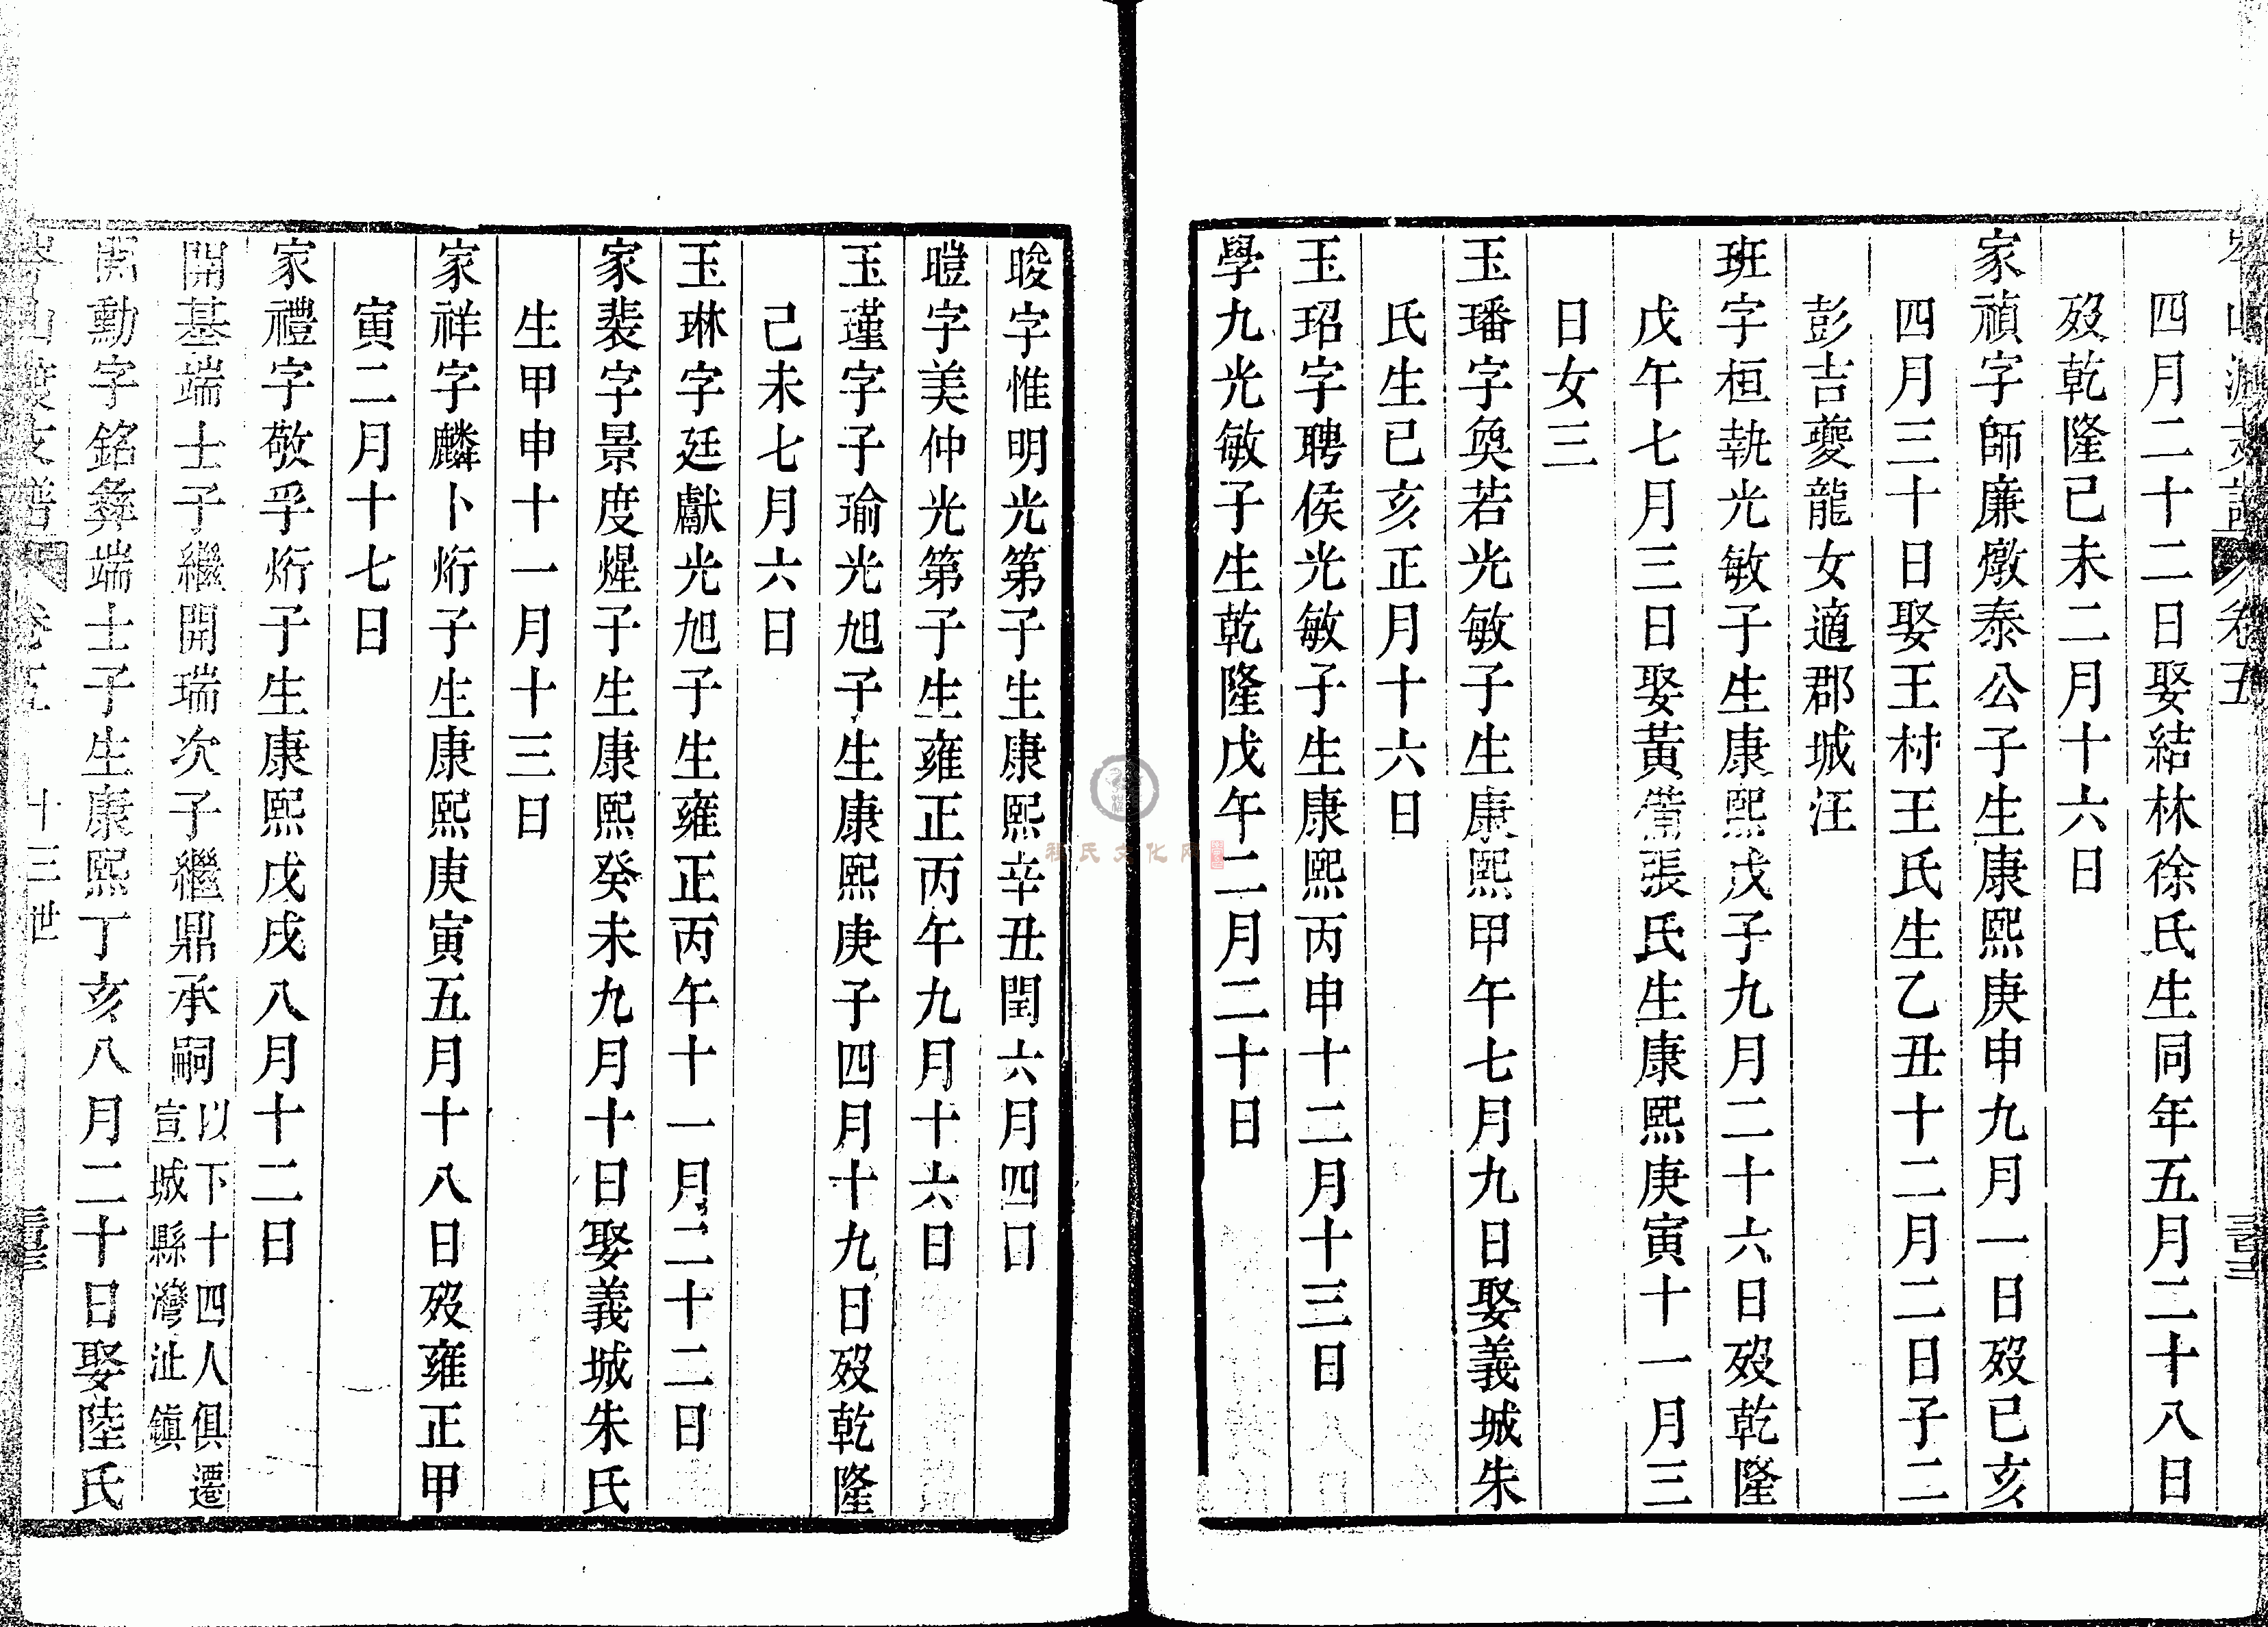 四月二十二日娶結林徐氏生同年五月二十八日
歿乾隆己未二月十六日
家禎字師廉燉泰公子生康熙庚申九月一日歿己亥
四月三十日娶王村王氏生乙丑十二月二日子二
彭吉夔龍女適郡城汪
班字桓執光敏子生康熙戊子九月二十六日歿乾隆
戊午七月三日娶黃備張氏生康熙庚寅十一月三
日女三
玉璠字奐若光敏子生康熙甲午七月九日娶義城朱
氏生己亥正月十六日
玉玿字聘侯光敏子生康熙丙申十二月十三日
學九光敏子生乾隆戊午二月二十日
晙字惟明光第子生康熙辛丑閏六月四日
暟字美仲光第子生雍正丙午九月十六日
玉瑾字子瑜光旭子生康熙庚子四月十九日歿乾隆
己未七月六日
玉琳字廷獻光旭子生雍正丙午十一月二十二日
家裴字景度煋子生康熙癸未九月十日娶義城朱氏
生甲申十一月十三日
家祥字麟卜烆子生康熙庚寅五月十八日歿雍正甲
寅二月十七日
家禮字敬孚烆子生康熙戊戌八月十二日
開基端士子繼開瑞次子繼鼎承嗣以下十四人俱遷
宣城縣灣沚鎮
開勳字銘彝端士子生康熙丁亥八月二十日娶陸氏
卷五 十三世